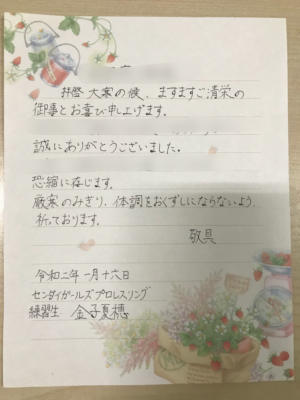 拝啓 大寒の候、ますますご清栄の
御事とお喜び申し上げます。
誠にありがとうございました。
恐縮に存じます。
厳寒のみぎり、体調をおくずしにならないよう、
祈っております。
敬具
令和二年一月十六日
センダイガールズプロレスリング
練習生 金子夏穂